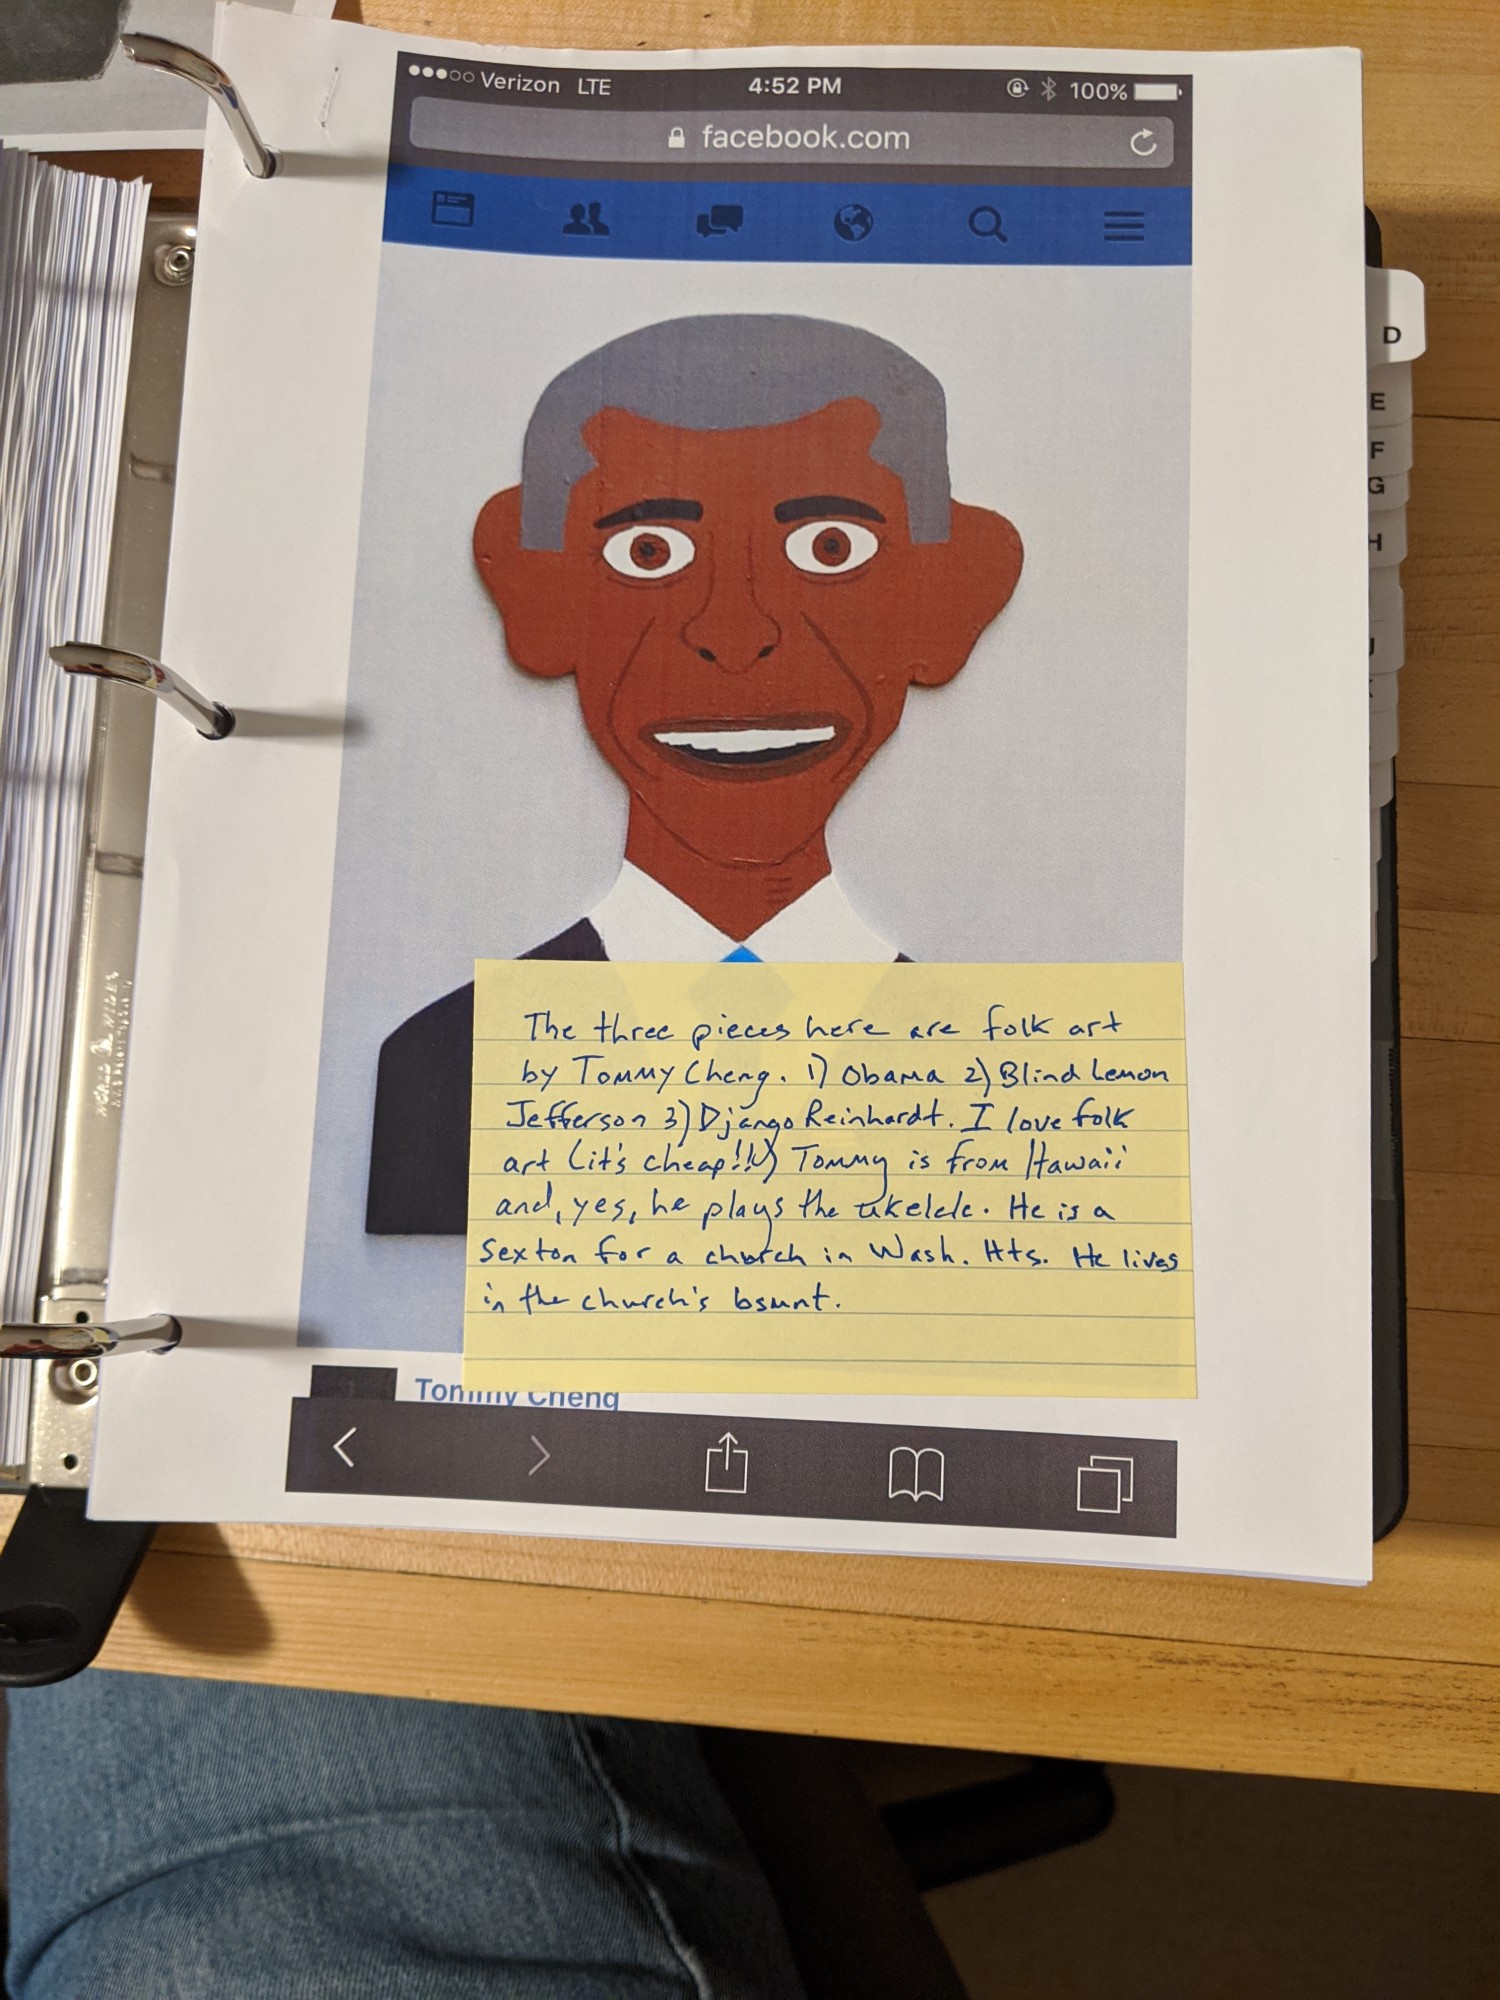 Verizon LTE 4:52 PM 100%
facebook.com
D
E
F
G
H
J
The three pieces here are folk art
by Tommy Cheng. 1) Obama 2) Blind Lemon
Jefferson 3) Django Reinhardt. I love folk
art (it's cheap!!!) Tommy is from Hawaii
and, yes, he plays the ukelele. He is a
sexton for a church in Wash. Hts. He lives
in the church's bsmnt.
Tommy Cheng